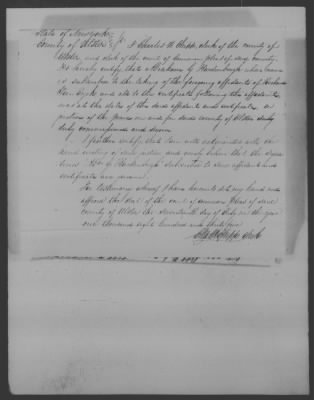 State of New York
County of Ulster } ss I Charles W. Chipp, clerk of the county of
Ulster and clerk of the court of common pleas of said county,
do hereby certify that Abraham G. Hardenbergh whose name
is subscribed to the taking of the foregoing affidavits of
and also to the certificate following the affidavits
was at the dates of the said affidavits and certificates, a
justice of the peace in and for said county of Ulster duly
duly commissioned and sworn
I further certify that I am well acquainted with the
hand writing of said justice and verily believe that the signa
tures "A. G. Hardenbergh" subscribed to said affidavits and
certificates are genuine.
In testimony whereof I have hereunto set my hand and
affixed the seal of the court of common pleas of said
county of Ulster the seventeenth day of July in the year
one thousand eight hundred and thirty four
Chipp Clerk